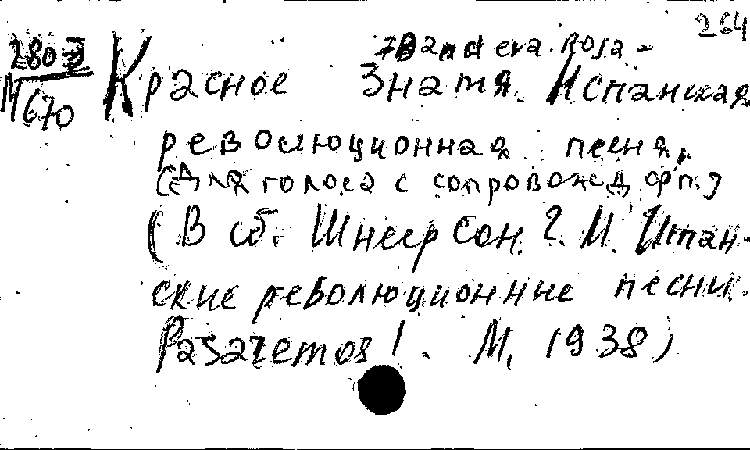 264
280-2
М670
"Bandera Rosa"
Красное Знамя. Испанская
революционная песня.
(Для голоса с сопровожд. фп.)
(В сб. Шнеерсон. Г. М. Испан-
ские революционные песни.
М, 1938)